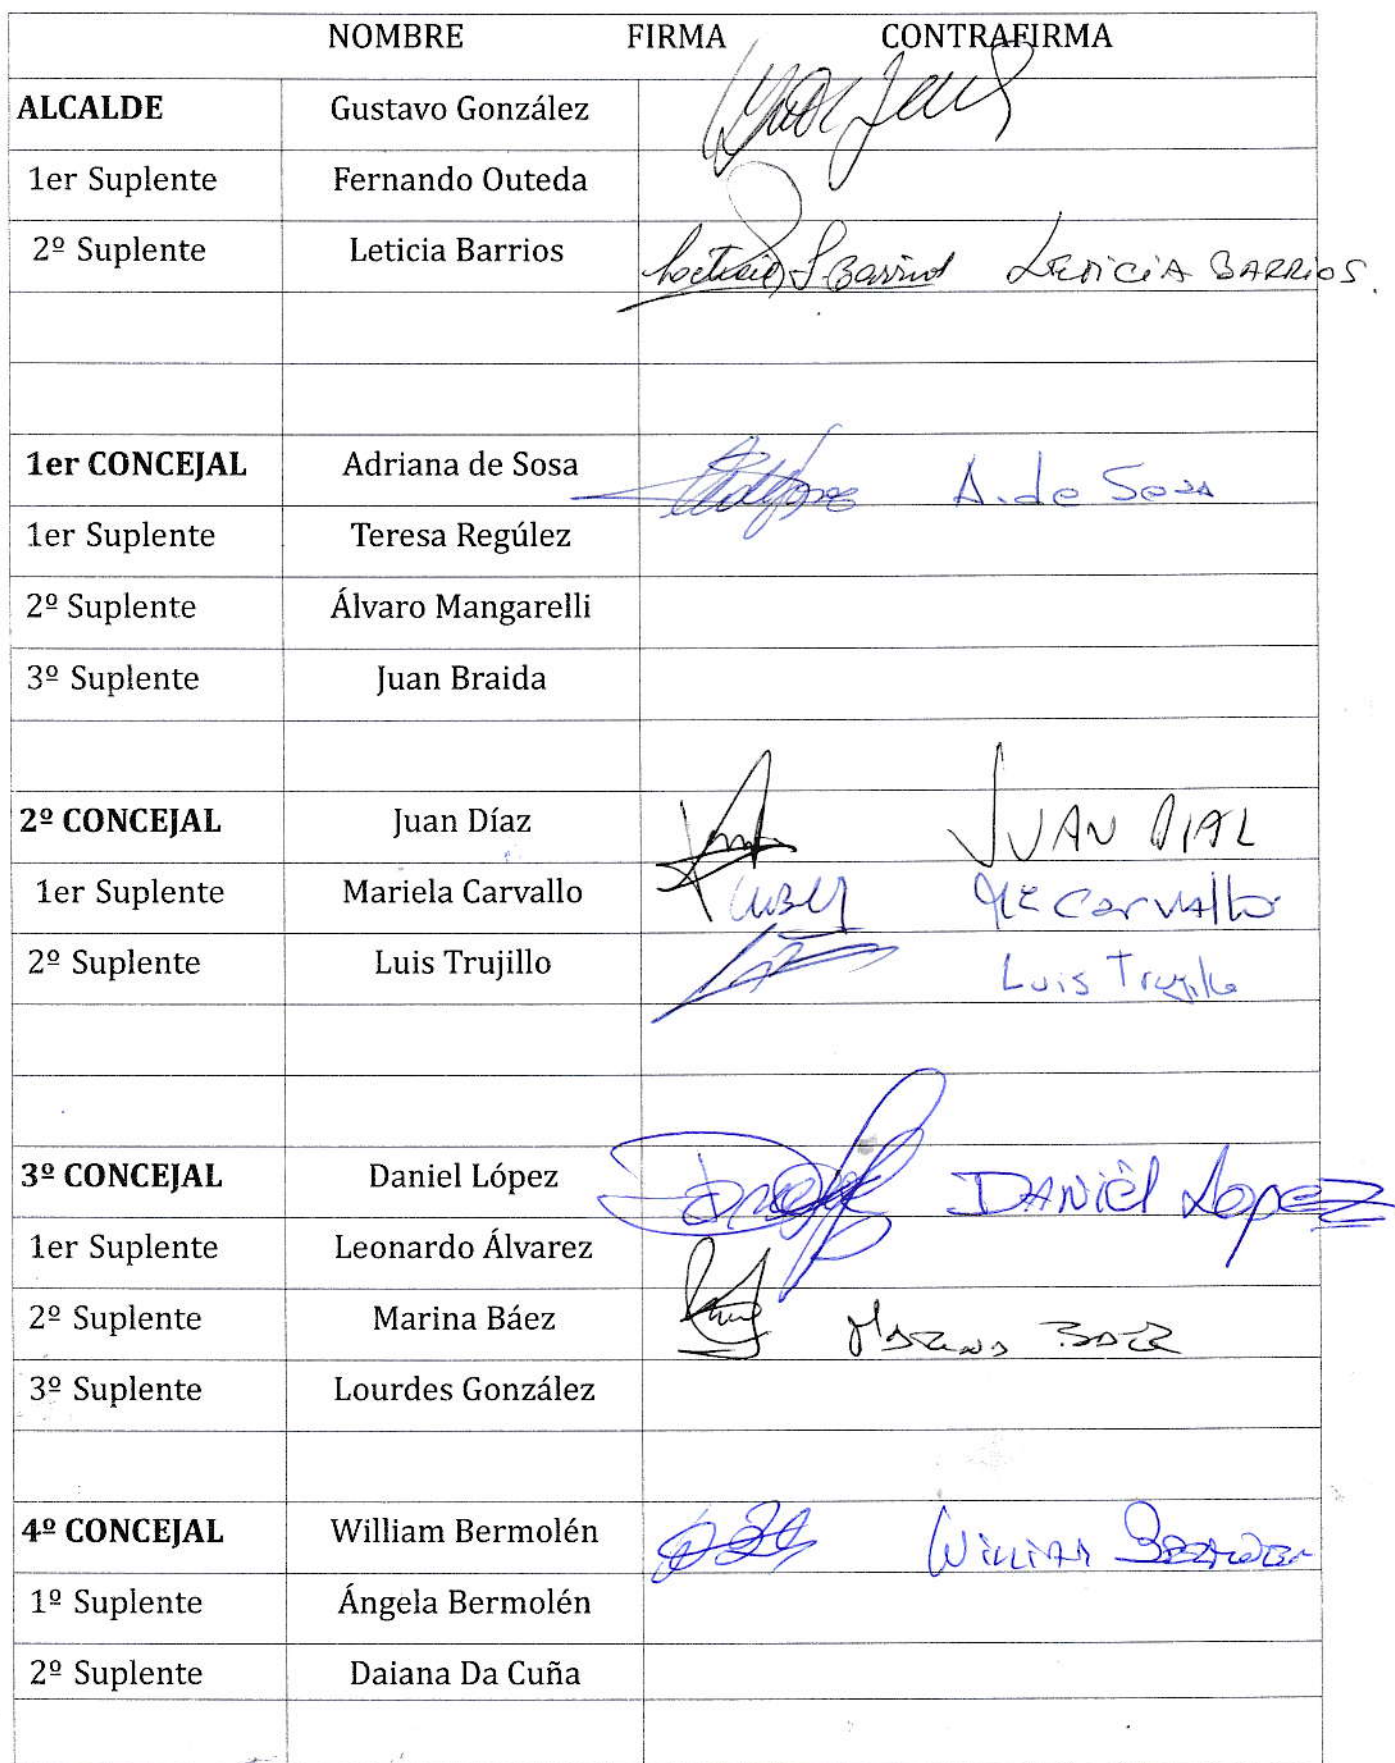 NOMBRE FIRMA CONTRAFIRMA
ALCALDE Gustavo González
1er Suplente Fernando Outeda
2º Suplente Leticia Barrios Leticia S. Barrios LETICIA BARRIOS.
1er CONCEJAL Adriana de Sosa A. de Sosa
1er Suplente Teresa Regúlez
2º Suplente Álvaro Mangarelli
3º Suplente Juan Braida
2º CONCEJAL Juan Díaz JUAN DIAZ
1er Suplente Mariela Carvallo Carvallo
2º Suplente Luis Trujillo Luis Trujillo
3º CONCEJAL Daniel López DANiEl Lopez
1er Suplente Leonardo Álvarez
2º Suplente Marina Báez MARINA BAEZ
3º Suplente Lourdes González
4º CONCEJAL William Bermolén WILLIAM BERMOLEN
1º Suplente Ángela Bermolén
2º Suplente Daiana Da Cuña